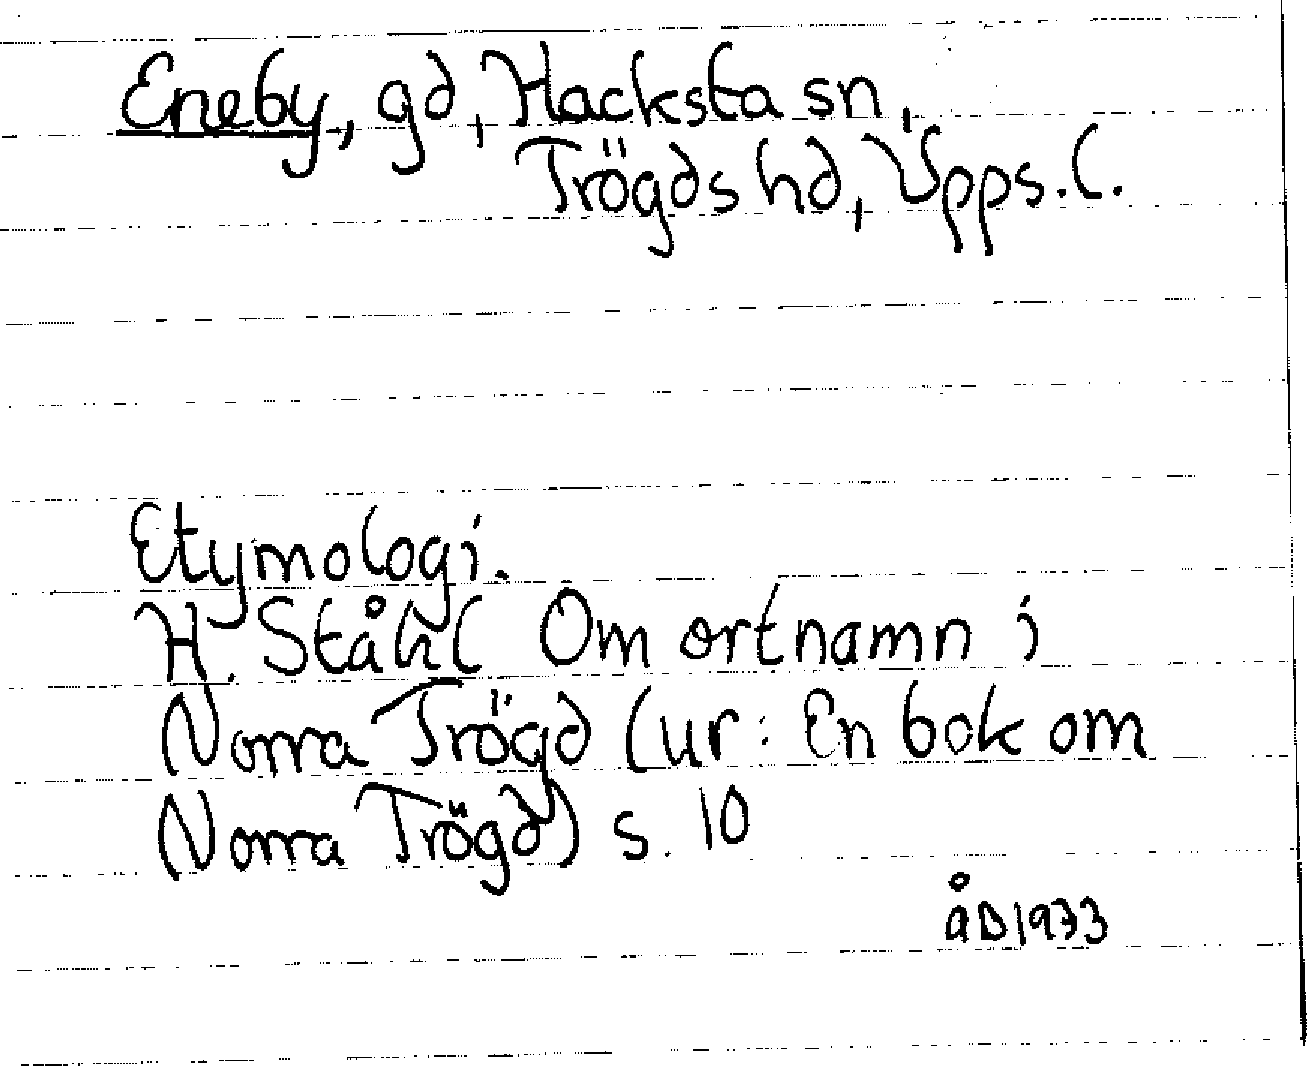 Eneby, gd, Hacksta sn,
Trögds hd, Upps. l.
Etymologi.
H. Ståhl Om ortnamn i
Norra Trögd (ur: En bok om
Norra Trögd) s. 10
åD 1973